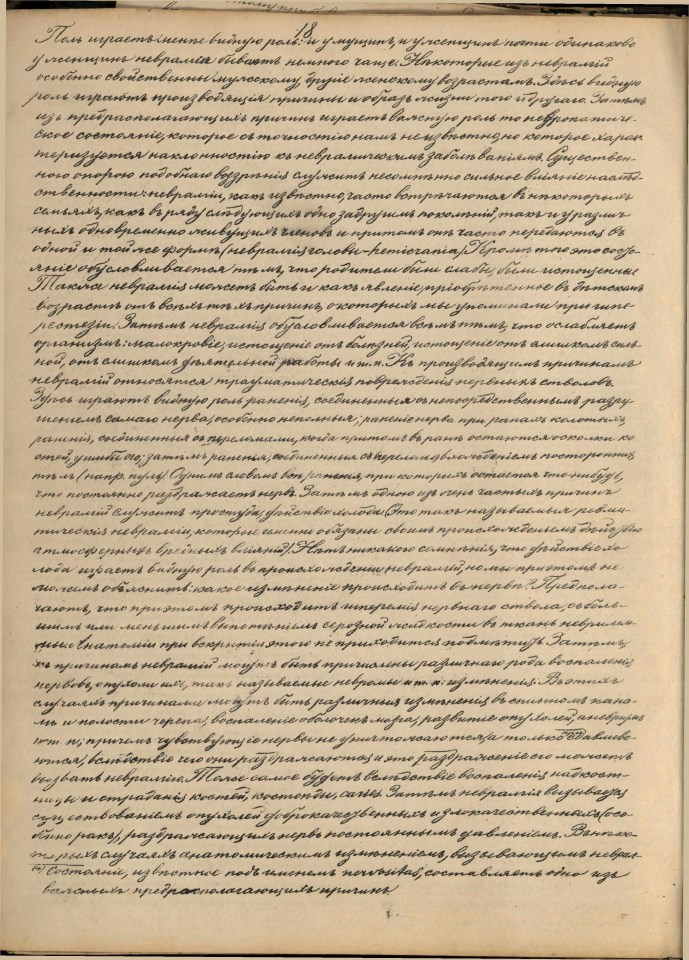 18
Полъ играетъ менѣе видную роль: и у мущинъ, и у женщинъ почти одинаково
у женщинъ невралгія бываетъ немного чаще. Нѣкоторые изъ невралгій
особенно свойственны мужскому, другіе женскому возрастамъ. Здѣсь видную
роль играютъ производящія причины и образъ жизни того и другаго. Затѣмъ
изъ предрасполагающихъ причинъ играетъ важную роль то невропатиче-
ское состояніе, которое съ точностію намъ не извѣстно, но которое харак
теризуется наклонностію къ невралгическимъ заболѣваніямъ. Существен-
ного опорою подобнаго воззрѣнія служитъ несомнѣнно сильное вліяніе наслѣд-
ственности: невралгіи, какъ извѣстно, часто встрѣчаются въ нѣкоторыхъ
семьяхъ, какъ въ ряду слѣдующихъ одно за другимъ поколѣній, такъ и у различ-
ныхъ одновременно живущихъ членовъ и притомъ онѣ часто передаются въ
одной и той же формѣ (невралгія головы - hemicrania). Кромѣ того это состо-
яніе обусловливается тѣмъ, что родители были слабы, были истощенные
Также невралгія можетъ быть и какъ явленіе, пріобрѣтенное въ дѣтскомъ
возрастѣ отъ всѣхъ тѣхъ причинъ, о которыхъ мы упоминали при гипе-
рестезіи. Затѣмъ невралгія обусловливается всѣмъ тѣмъ, что ослабляетъ
организмъ: малокровіе, истощеніе отъ болѣзней, истощеніе отъ слишкомъ силь-
ной, отъ слишкомъ дѣятельной работы и т.п. Къ производящимъ причинамъ
невралгій относятся травматическія поврежденія нервныхъ стволовъ
Здѣсь играютъ видную роль раненія, соединенныя съ непосредственнымъ разру
шеніемъ самаго нерва, особенно неполныя; раненіе нерва при ранахъ колотыхъ,
раненія, соединенныя съ переломами, когда притомъ въ ранѣ остаются осколки ко
стей, ушибы его; затѣмъ раненія, соединенныя съ постороннимъ
тѣломъ (напр. пуль) Однимъ словомъ всѣ раненія, при которыхъ остается что нибудь,
что постоянно раздражаетъ нервъ. Затѣмъ одною изъ очень частыхъ причинъ
невралгій служитъ простуда, дѣйствіе холода (Это такъ называемыя ревма-
тическія невралгіи, которые именно обязаны своимъ происхожденіемъ дѣйствію
атмосферныхъ вредныхъ вліяній). Нѣтъ никакого сомнѣнія, что дѣйствіе хо
лода играетъ видную роль въ происхожденіи невралгій, но мы при этомъ не
можемъ объяснить: какое измѣненіе происходитъ въ нервѣ? Предпола-
гаютъ, что при этомъ происходитъ гиперемія нервнаго ствола, съ боль-
шимъ или меньшимъ выпотѣніемъ серозной жидкости въ ткань неврилем-
мы. Анатоміи при вскрытіи этого не приходится подмѣтить. Затѣмъ,
къ причинамъ невралгій могутъ быть причислены различнаго рода воспаленія
нервовъ, опухоли ихъ, такъ называемые невромы и т.п. измѣненія. Въ этихъ
случаяхъ причинами могутъ быть различныя измѣненія въ спинномъ кана-
лѣ и полости черепа, воспаленіе оболочекъ мозга, развитіе опухолей, аневризмъ
и т. п; причемъ чувствующіе нервы не уничтожаются, а только сдавлива-
ются, вслѣдствіе чего они раздражаются и это раздраженіе его можетъ
вызвать невралгію. Тоже самое будетъ вслѣдствіе воспаленія надкост-
ницы и страданія костей, костоѣды, caries. Затѣмъ невралгія вызывается
существованіемъ опухолей (доброкачественныхъ и злокачественныхъ (осо
бенно ракъ), раздражающихъ нервъ постояннымъ давленіемъ. Въ нѣко-
торыхъ случаяхъ анатомическимъ измѣненіемъ, вызывающимъ неврал-
*) Состояніе, извѣстное подъ именемъ nervositas, составляетъ одно изъ
важныхъ предрасполагающихъ причинъ